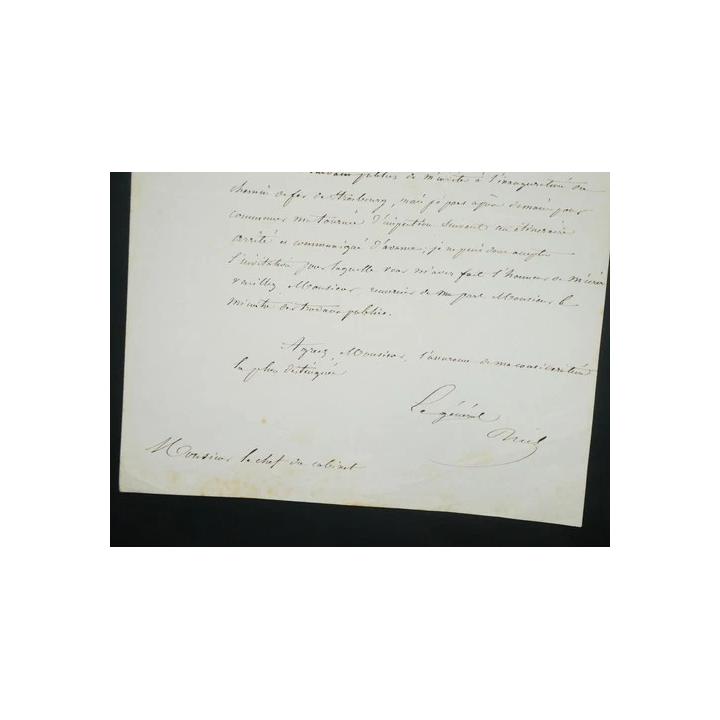 travaux publics de m'inviter à l'inauguration du
chemin de fer de Strasbourg, mais je pars après demain pour
commencer ma tournée d'inspection suivant un itinéraire
arrêté et communiqué d'avance; je ne puis donc accepter
l'invitation pour laquelle vous m'avez fait l'honneur de m'écrire
veuillez, Monsieur, remercier de ma part Monsieur le
ministre des travaux publics.
Agréez, Monsieur, l'assurance de ma considération
la plus distinguée
Le général
Niel
Monsieur le chef du cabinet